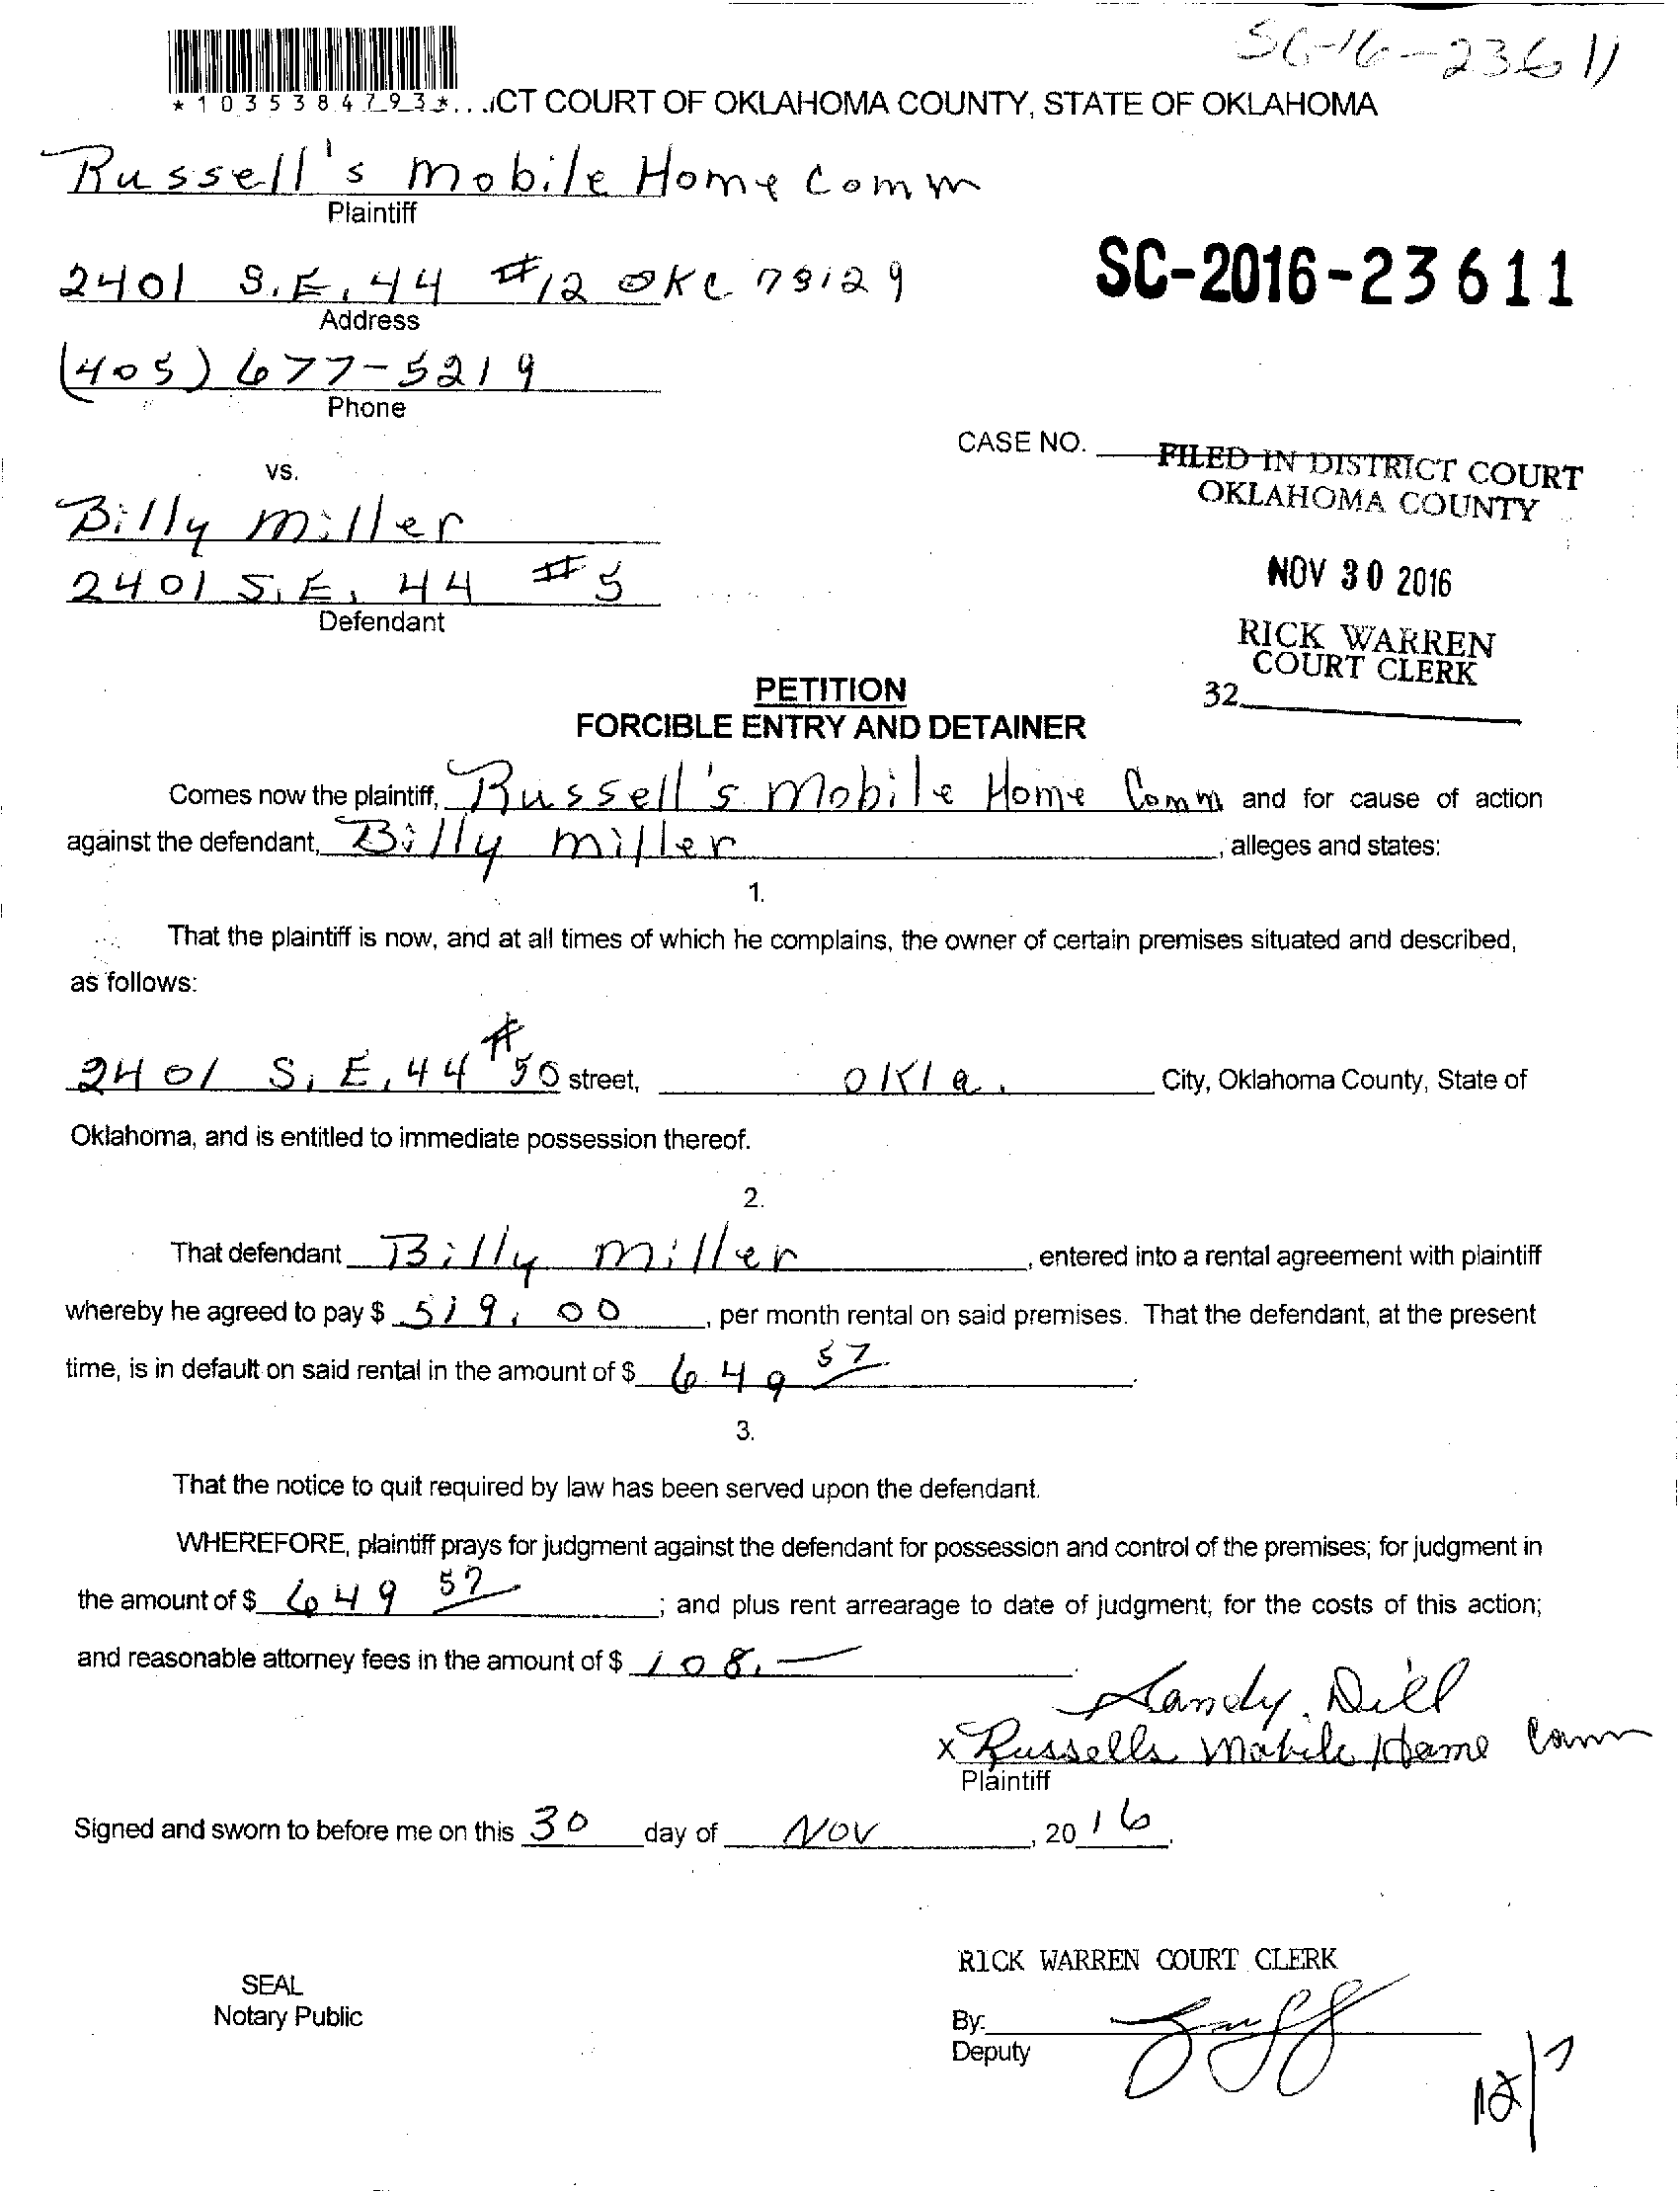 SC-16-23611
*1035384793*...ICT COURT OF OKLAHOMA COUNTY, STATE OF OKLAHOMA
Russell's Mobile Home Comm
Plaintiff
2401 S.E. 44 #12 OKC 73129
SC-2016-23611
Address
(405) 677-5219
Phone
CASE NO.
FILED IN DISTRICT COURT
OKLAHOMA COUNTY
vs.
Billy Miller
2401 S.E. 44 #5
Defendant
NOV 30 2016
RICK WARREN
COURT CLERK
32
PETITION
FORCIBLE ENTRY AND DETAINER
Comes now the plaintiff, Russell's Mobile Home Comm and for cause of action
against the defendant, Billy Miller, alleges and states:
1.
That the plaintiff is now, and at all times of which he complains, the owner of certain premises situated and described,
as follows:
2401 S.E. 44 #50 street, Okla. City, Oklahoma County, State of
Oklahoma, and is entitled to immediate possession thereof.
2.
That defendant Billy Miller, entered into a rental agreement with plaintiff
whereby he agreed to pay $ 519.00, per month rental on said premises. That the defendant, at the present
time, is in default on said rental in the amount of $ 649 57.
3.
That the notice to quit required by law has been served upon the defendant.
WHEREFORE, plaintiff prays for judgment against the defendant for possession and control of the premises; for judgment in
the amount of $ 649 57; and plus rent arrearage to date of judgment; for the costs of this action;
and reasonable attorney fees in the amount of $ 108.—.
Sandy Dill
x Russells Mobile Home Comm
Plaintiff
Signed and sworn to before me on this 30 day of Nov, 2016.
RICK WARREN COURT CLERK
SEAL
Notary Public
By:
Deputy
12/7